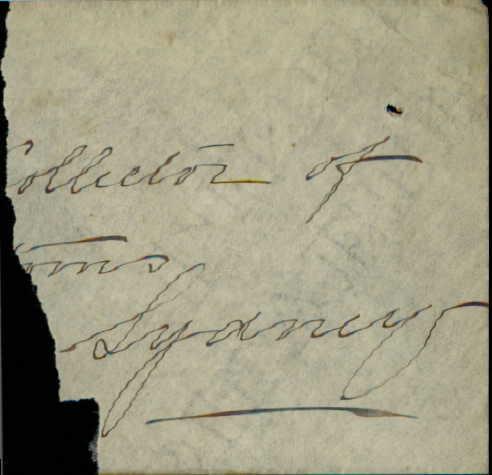 Collector of
toms
Sydney